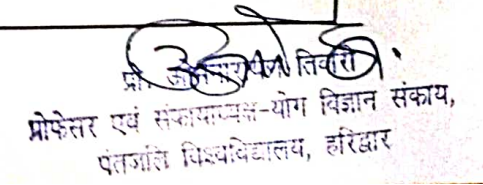 प्रो० ओमनारायण तिवारी
प्रोफेसर एवं संकायाध्यक्ष-योग विज्ञान संकाय,
पंतजलि विश्वविद्यालय, हरिद्वार